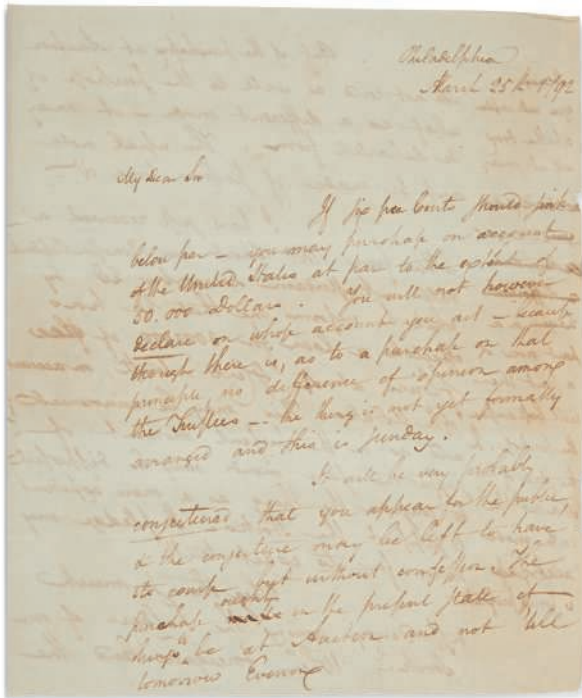 Philadelphia
March 25th 1792
My Dear Sir
If six per Cents should sink
below par – you may purchase on account
of the United States at par to the extent of
50.000 dollars. You will not however
declare on whose account you act – because
though there is, as to a purchase on that
principle, no difference of opinion among
the Trustees – the thing is not yet formally
arranged and this is Sunday.
It will be very probably
conjectured that you appear for the public,
& the conjecture may be left to have
its course but without confession. The
purchase ought in the present state of
things be at Auction and not till
tomorrow Evening